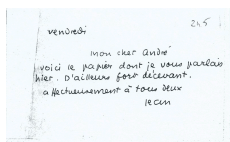 245
vendredi
mon cher André
voici le papier dont je vous parlais
hier. D'ailleurs fort décevant.
affectueusement à tous deux
Jean